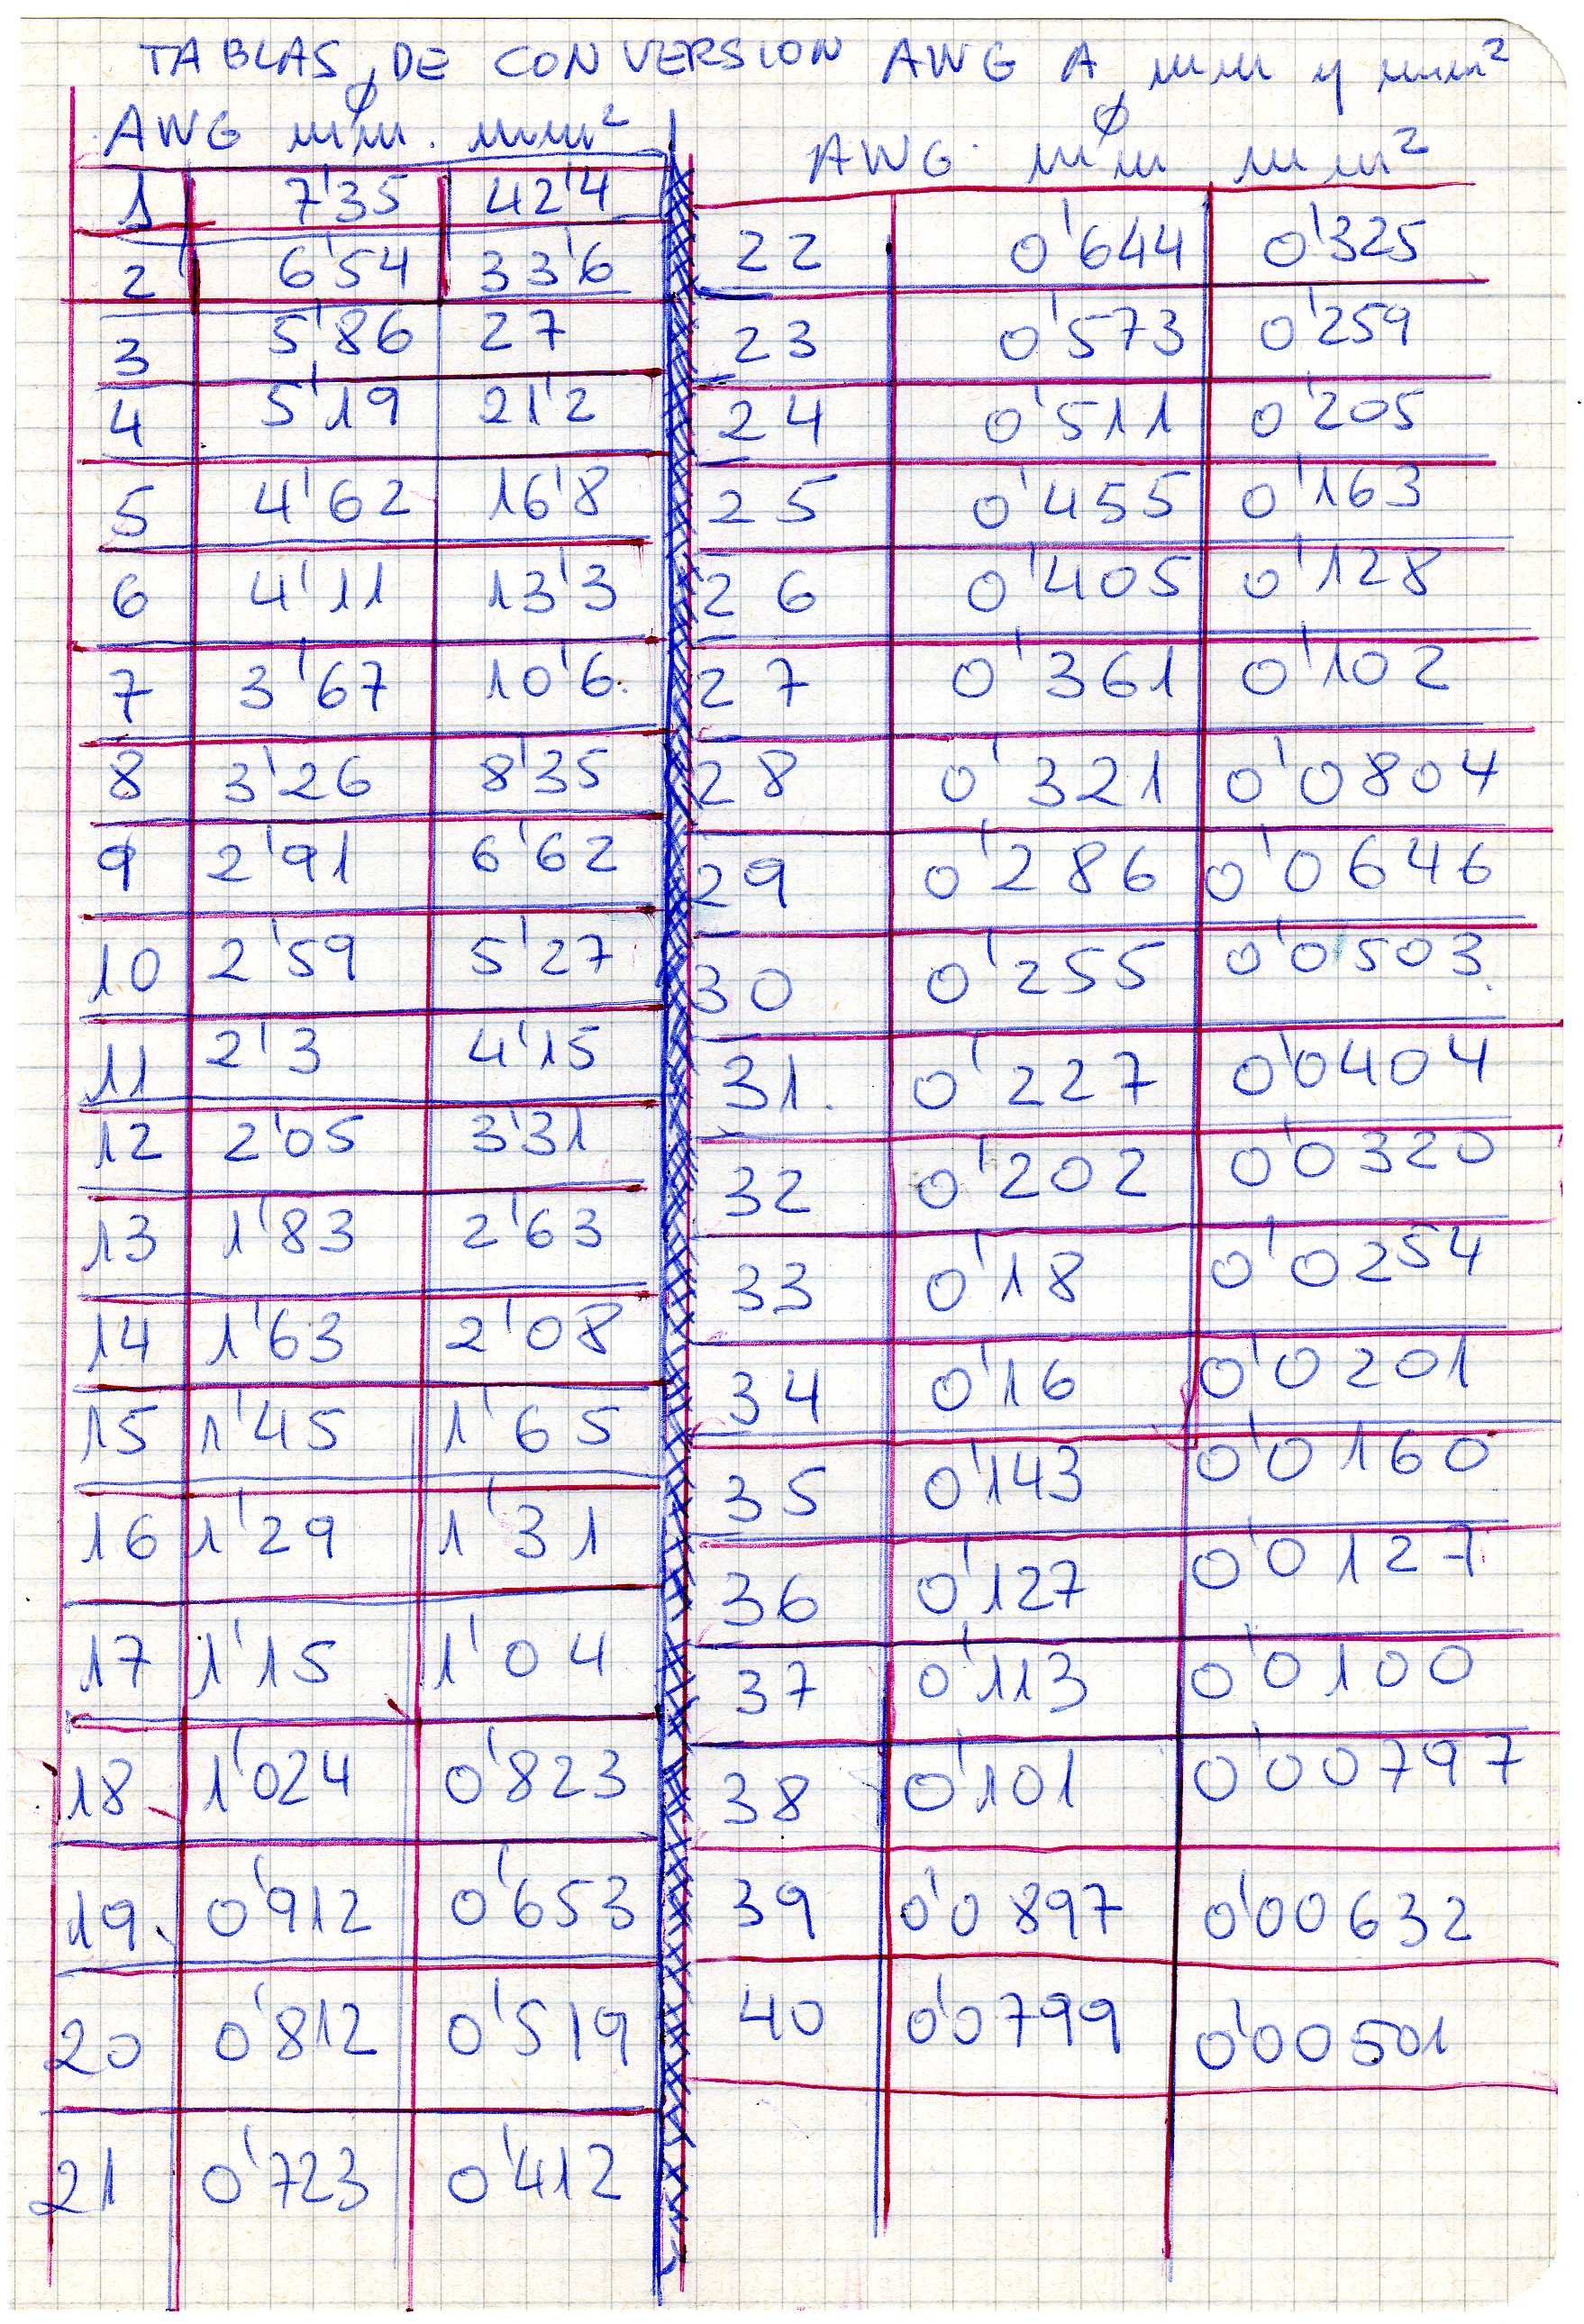 TABLAS DE CONVERSION AWG A mm y mm²
AWG ø mm. mm²
1 7'35 42'4
2 6'54 33'6
3 5'86 27
4 5'19 21'2
5 4'62 16'8
6 4'11 13'3
7 3'67 10'6.
8 3'26 8'35
9 2'91 6'62
10 2'59 5'27
11 2'3 4'15
12 2'05 3'31
13 1'83 2'63
14 1'63 2'08
15 1'45 1'65
16 1'29 1'31
17 1'15 1'04
18 1'024 0'823
19. 0'912 0'653
20 0'812 0'519
21 0'723 0'412
AWG. ø mm mm²
22 0'644 0'325
23 0'573 0'259
24 0'511 0'205
25 0'455 0'163
26 0'405 0'128
27 0'361 0'102
28 0'321 0'0804
29 0'286 0'0646
30 0'255 0'0503.
31. 0'227 0'0404
32 0'202 0'0320
33 0'18 0'0254
34 0'16 0'0201
35 0'143 0'0160
36 0'127 0'0127
37 0'113 0'0100
38 0'101 0'00797
39 0'0897 0'00632
40 0'0799 0'00501